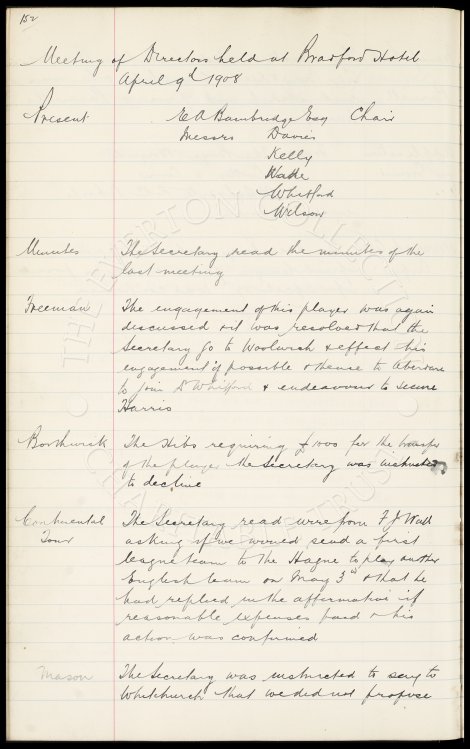 152
Meeting of Directors held at Bradford Hotel
April 9th 1908
Present E A Bainbridge Esq Chair
Messrs Davies
Kelly
Wade
Whitford
Wilson
Minutes The Secretary read the minutes of the
last meeting
Freeman The engagement of this player was again
discussed & it was resolved that the
Secretary go to Woolwich & effect his
engagement if possible & thence to Aberdare
to join Dr Whitford & endeavour to secure
Harris
Borthwick The Hibs requiring £1000 for the transfer
of the player the Secretary was instructed
to decline
Continental The Secretary read wire from F J Wall
Tour asking if we would send a first
league team to the Hague to play another
English team on May 3rd & that he
had replied in the affirmative if
reasonable expenses paid & his
action was confirmed
Mason The Secretary was instructed to say to
Whitchurch that we did not propose
THE EVERTON COLLECTION
CHARITABLE TRUST